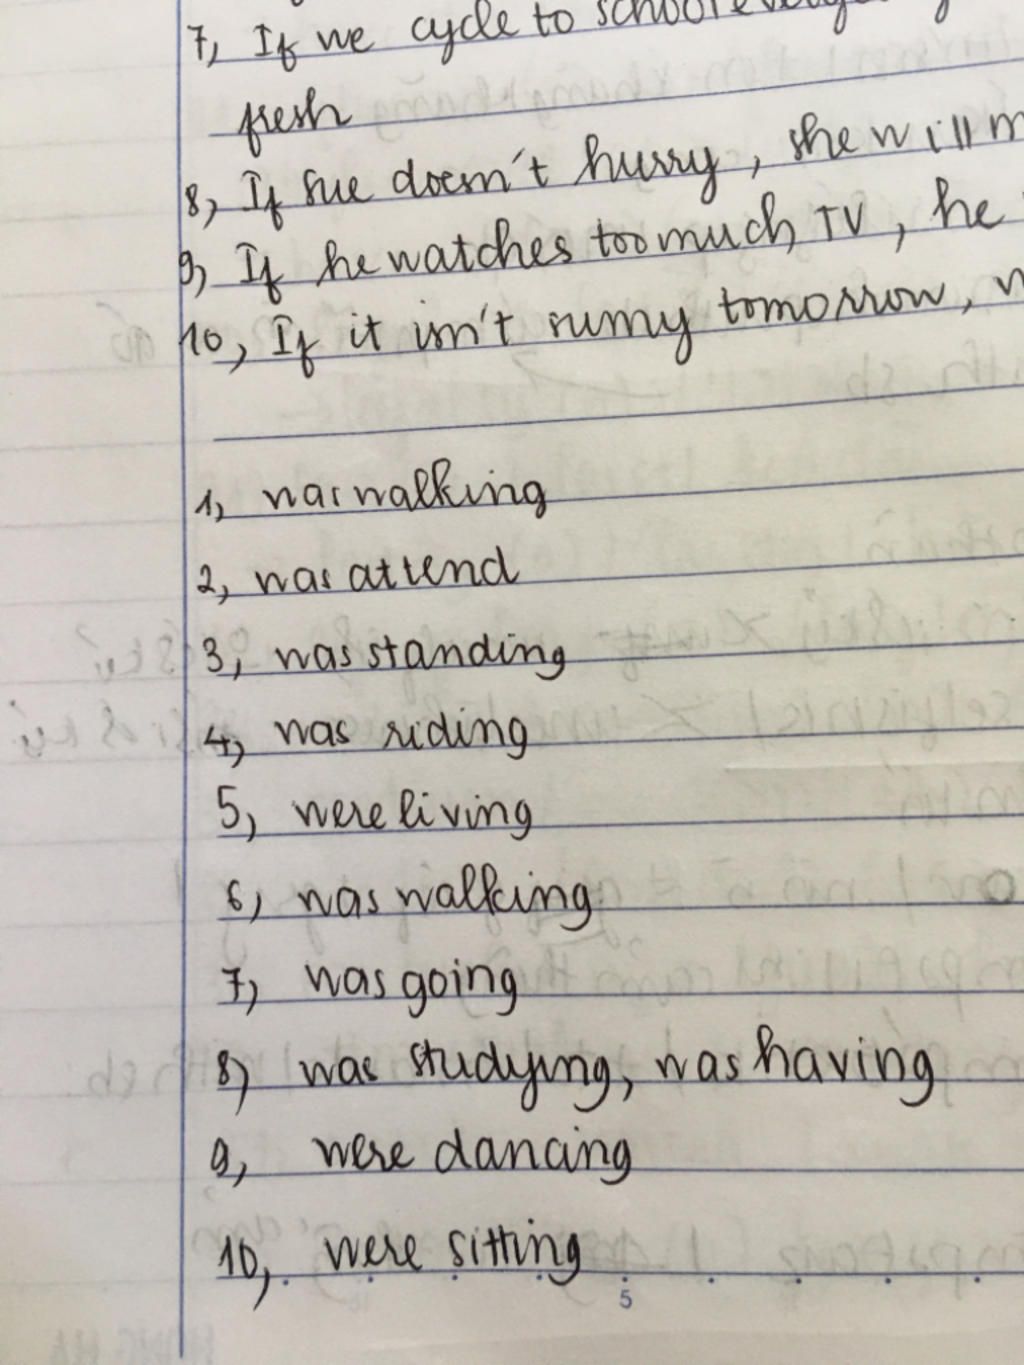 7, If we cycle to school
fresh
8, If Sue doesn't hurry, she will
9, If he watches too much TV, he
10, If it isn't sunny tomorrow,
1, was walking
2, was attend
3, was standing
4, was riding
5, were living
6, was walking
7, was going
8) was studying, was having
9, were dancing
10, were sitting
5